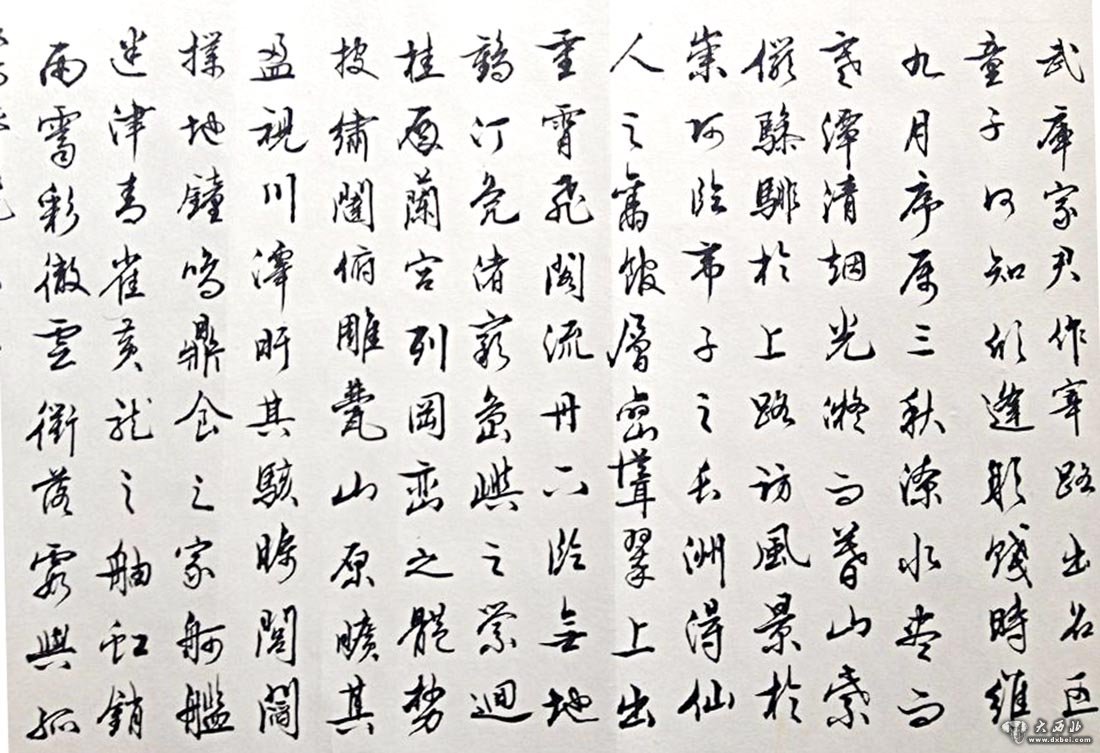 武庫家君作宰路出名區
童子何知躬逢勝餞時維
九月序属三秋潦水盡而
寒潭清烟光凝而暮山紫
儼驂騑於上路訪風景於
崇阿臨帝子之長洲得仙
人之舊館層巒聳翠上出
重霄飛閣流丹下臨無地
鶴汀鳧渚窮島嶼之縈迴
桂殿蘭宮列岡巒之體勢
披繡闥俯雕甍山原曠其
盈視川澤盱其駭矚閭閻
撲地鐘鳴鼎食之家舸艦
迷津青雀黃龍之舳虹銷
雨霽彩徹雲衢落霞與孤
大西北
www.dxbei.com